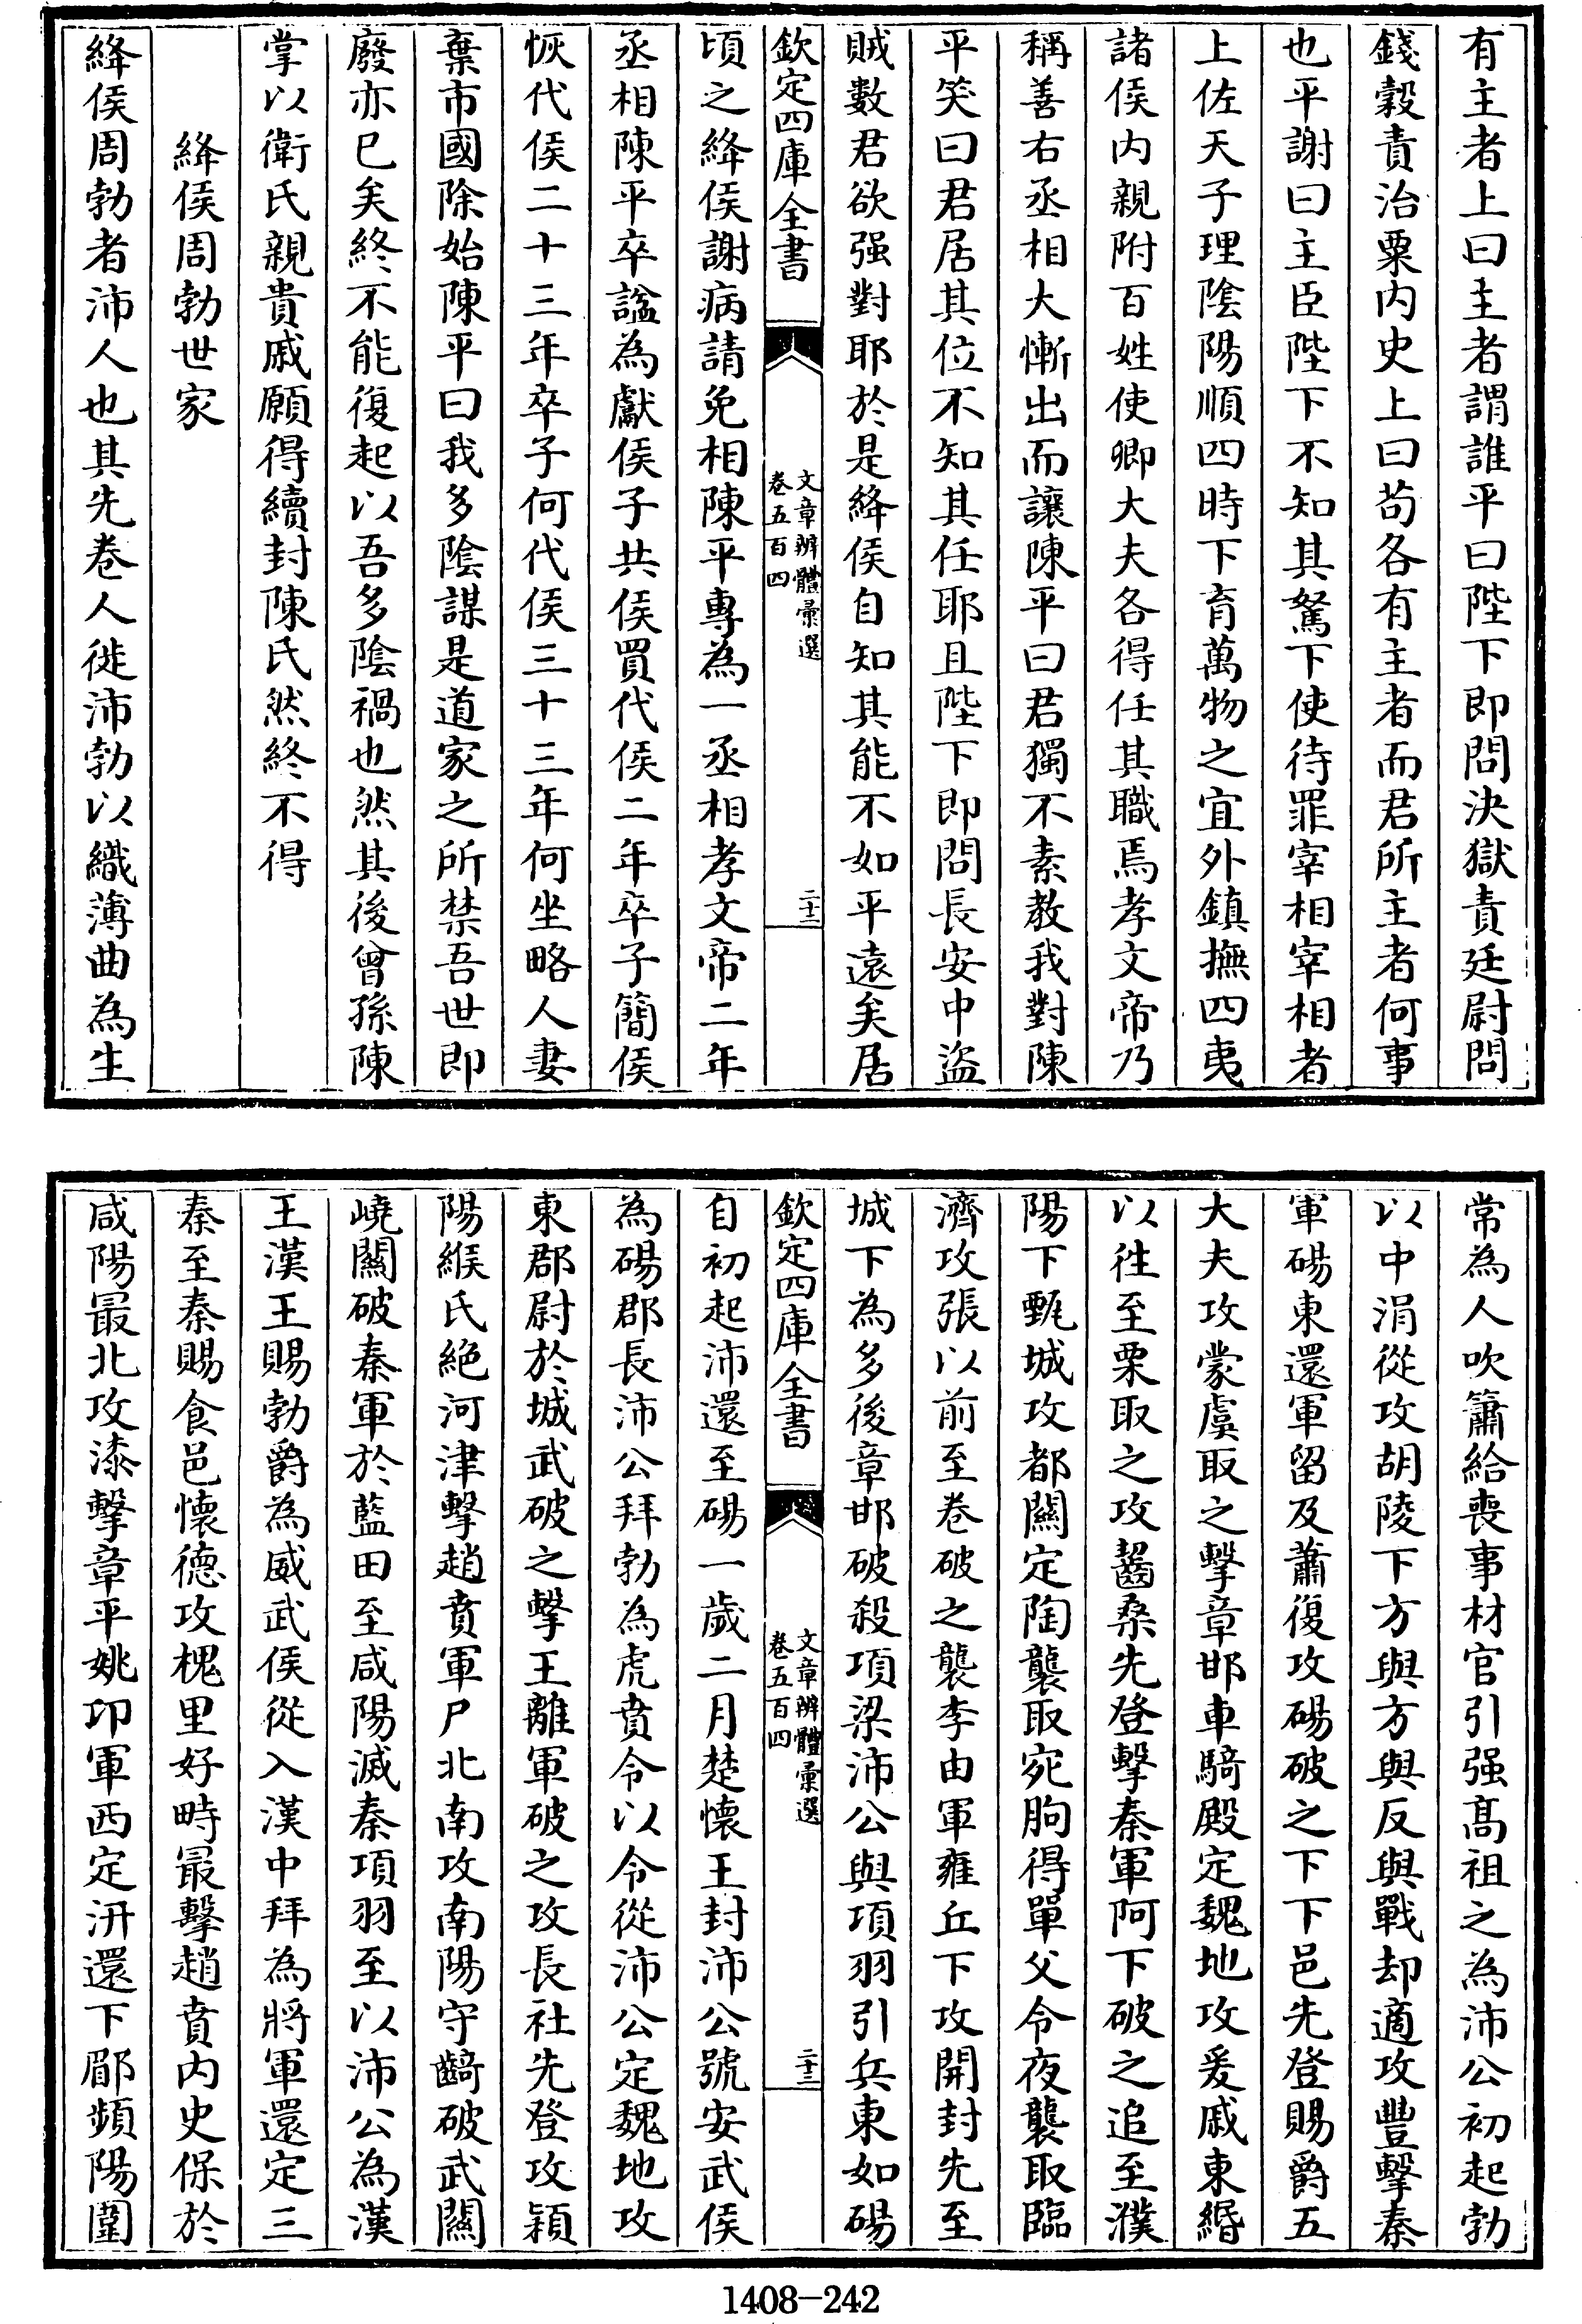 有主者上曰主者謂誰平曰陛下即問決獄責廷尉問
錢穀責治粟内史上曰苟各有主者而君所主者何事
也平謝曰主臣陛下不知其駑下使待罪宰相宰相者
上佐天子理陰陽順四時下育萬物之宜外鎮撫四夷
諸侯内親附百姓使卿大夫各得任其職焉孝文帝乃
稱善右丞相大慚出而讓陳平曰君獨不素教我對陳
平笑曰君居其位不知其任耶且陛下即問長安中盜
賊數君欲强對耶於是絳侯自知其能不如平遠矣居
欽定四庫全書
文章辨體彙選
卷五百四
二十二
頃之絳侯謝病請免相陳平專為一丞相孝文帝二年
丞相陳平卒諡為獻侯子共侯買代侯二年卒子簡侯
恢代侯二十三年卒子何代侯三十三年何坐略人妻
棄市國除始陳平曰我多陰謀是道家之所禁吾世即
廢亦已矣終不能復起以吾多陰禍也然其後曾孫陳
掌以衛氏親貴戚願得續封陳氏然終不得
絳侯周勃世家
絳侯周勃者沛人也其先卷人徙沛勃以織薄曲為生
常為人吹簫給喪事材官引强髙祖之為沛公初起勃
以中涓從攻胡陵下方與方與反與戰却適攻豐擊秦
軍碭東還軍留及蕭復攻碭破之下下邑先登賜爵五
大夫攻蒙虞取之擊章邯車騎殿定魏地攻爰戚東緡
以往至栗取之攻齧桑先登擊秦軍阿下破之追至濮
陽下甄城攻都關定陶襲取宛朐得單父令夜襲取臨
濟攻張以前至卷破之擊李由軍雍丘下攻開封先至
城下為多後章邯破殺項梁沛公與項羽引兵東如碭
欽定四庫全書
文章辨體彙選
卷五百四
二十三
自初起沛還至碭一歲二月楚懷王封沛公號安武侯
為碭郡長沛公拜勃為虎賁令以令從沛公定魏地攻
東郡尉於城武破之擊王離軍破之攻長社先登攻潁
陽緱氏絶河津擊趙賁軍尸北南攻南陽守齮破武關
嶢關破秦軍於藍田至咸陽滅秦項羽至以沛公為漢
王漢王賜勃爵為威武侯從入漢中拜為將軍還定三
秦至秦賜食邑懷德攻槐里好畤最擊趙賁内史保於
咸陽最北攻漆擊章平姚卬軍西定汧還下郿頻陽圍
1408-242